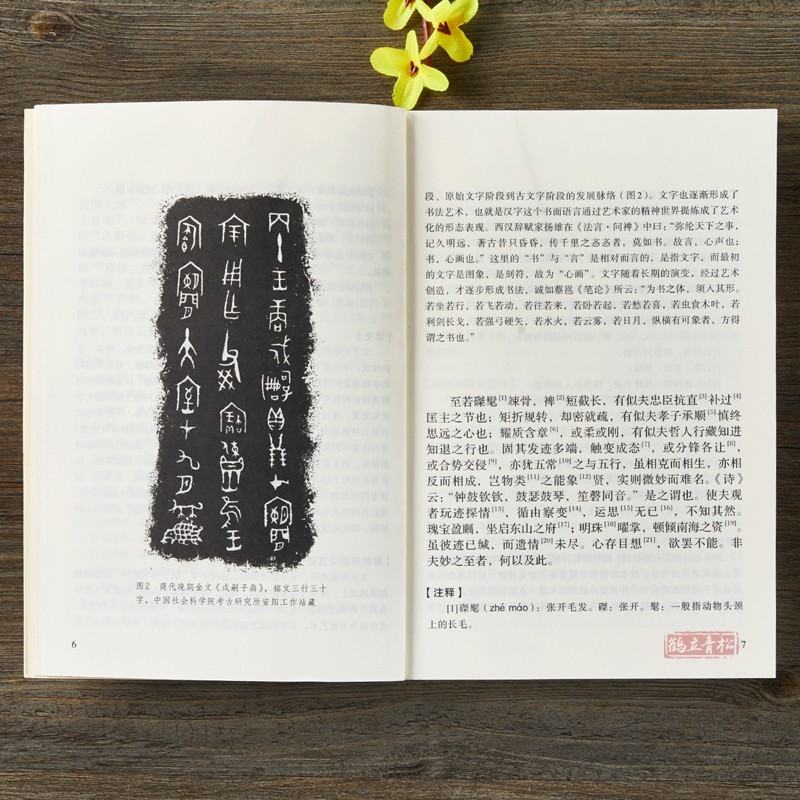 图2 商代晚期金文《戍嗣子鼎》，铭文三行三十
字，中国社会科学院考古研究所安阳工作站藏
6
段，原始文字阶段到古文字阶段的发展脉络（图2）。文字也逐渐形成了
书法艺术，也就是汉字这个书面语言通过艺术家的精神世界提炼成了艺术
化的形态表现。西汉辞赋家扬雄在《法言·问神》中曰：“弥纶天下之事，
记久明远，著古昔只昏昏，传千里之忞忞者，莫如书。故言，心声也；
书，心画也。”这里的“书”与“言”是相对而言的，是指文字，而最初
的文字是图象，是刻符，故为“心画”。文字随着长期的演变，经过艺术
创造，才逐步形成书法，诚如蔡邕《笔论》所云：“为书之体，须入其形。
若坐若行，若飞若动，若往若来，若卧若起，若愁若喜，若虫食木叶，若
利剑长戈，若强弓硬矢，若水火，若云雾，若日月，纵横有可象者，方得
谓之书也。”
至若磔髦[1]竦骨，裨[2]短截长，有似夫忠臣抗直[3]补过[4]
匡主之节也；矩折规转，却密就疏，有似夫孝子承顺[5]慎终
思远之心也；耀质含章[6]，或柔或刚，有似夫哲人行藏知进
知退之行也。固其发迹多端，触变成态[7]，或分锋各让[8]，
或合势交侵[9]，亦犹五常[10]之与五行，虽相克而相生，亦相
反而相成，岂物类[11]之能象[12]贤，实则微妙而难名。《诗》
云：“钟鼓钦钦，鼓瑟鼓琴，笙磬同音。”是之谓也。使夫观
者玩迹探情[13]，循由察变[14]，运思[15]无已[16]，不知其然。
瑰宝盈瞩，坐启东山之府[17]；明珠[18]曜掌，顿倾南海之资[19]。
虽彼迹已缄，而遗情[20]未尽。心存目想[21]，欲罢不能。非
夫妙之至者，何以及此。
【注释】
[1]磔髦（zhé máo）：张开毛发。磔：张开。髦：一般指动物头颈
上的长毛。
鹤立青松
7